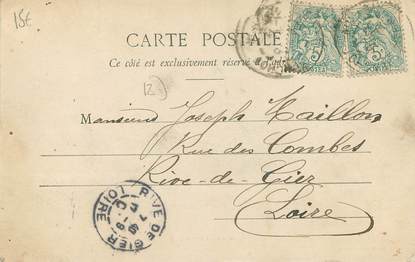 15€
CARTE POSTALE
Ce côté est exclusivement réservé à l'adresse
12)
Monsieur Joseph Maillon
Rue des Combes
Rive-de-Gier
Loire
RIVE DE GIER
LOIRE
5c 5c